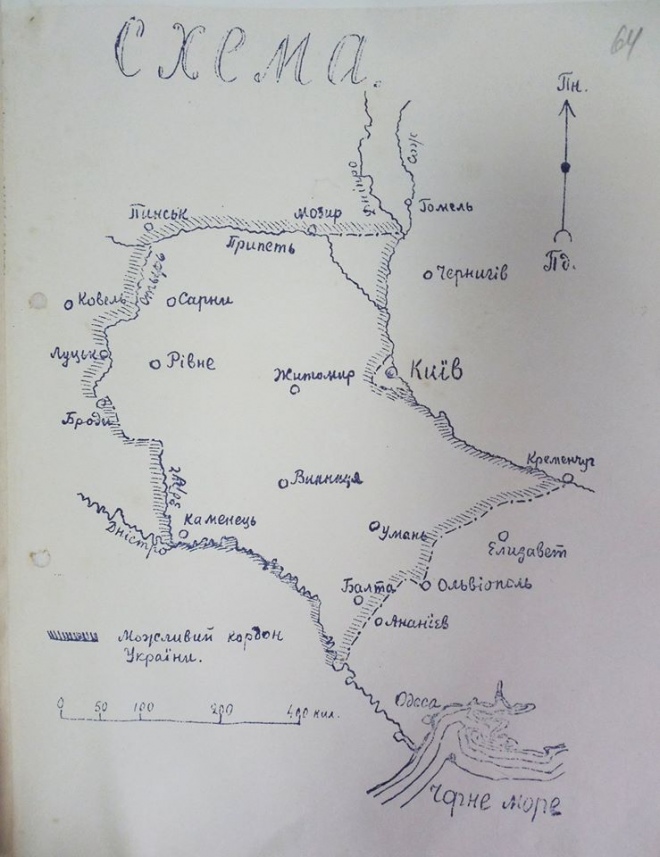 64
Схема.
Пн.
Пд.
Дніпро
Сож
Гомель
Пинськ
Мозир
Припеть
Чернигів
Стырь
Ковель
Сарни
Луцьк
Рівне
Житомир
Київ
Броди
Кременчуг
Винниця
Збруч
Каменець
Умань
Дністро
Елизавет
Балта
Ольвіополь
Ананієв
Можливий кордон
України.
0 50 100 200 400 кил.
Одеса
Чорне море